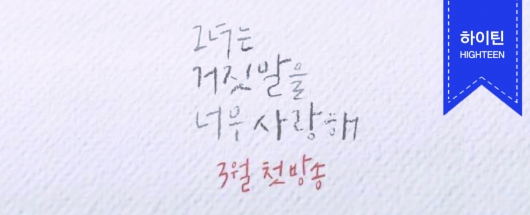 그녀는
거짓말을
너무 사랑해
3월 첫방송
하이틴
HIGHTEEN